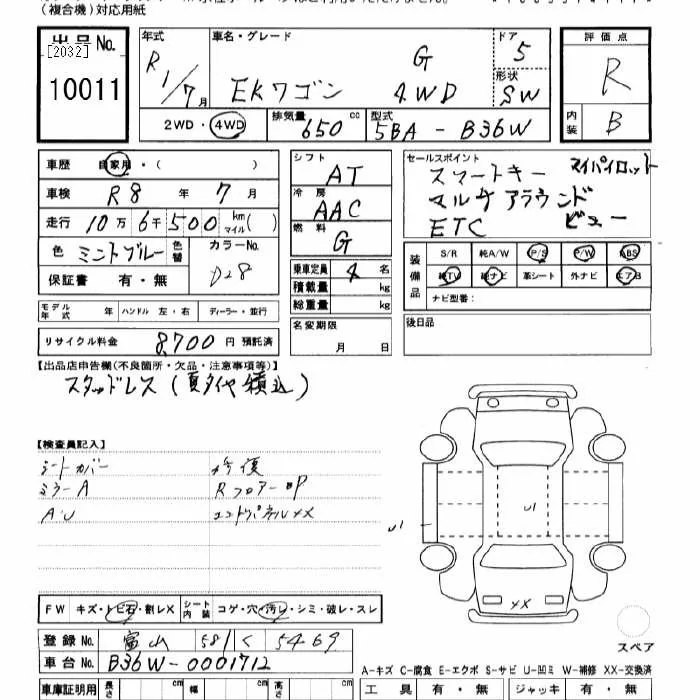 (複合機)対応用紙
出品No.
[2032]
10011
年式
R1/7月
車名・グレード
G
EKワゴン 4WD
ドア
5
形状
SW
評価点
R
内装
B
2WD・4WD
排気量 650 cc
型式 5BA-B36W
車歴 自家用・( )
車検 R8年7月
走行 10万6千500 km マイル( )
色 ミントブルー 色替
カラーNo. D28
保証書 有・無
シフト AT
冷房 AAC
燃料 G
乗車定員 4名
積載量 kg
総重量 kg
セールスポイント
スマートキー マイパイロット
マルチアラウンド
ETC ビュー
装備品
S/R 純A/W P/S P/W ABS
純TV 純ナビ 革シート 外ナビ エアB
ナビ型番:
モデル年式 年 ハンドル 左・右 ディーラー・並行
名変期限
月 日
後日品
リサイクル料金 8,700円 預託済
【出品店申告欄(不良箇所・欠品・注意事項等)】
スタッドレス(夏タイヤ積込)
【検査員記入】
シートカバー 修復
ミラーA Rフロアー
A・U エンドパネルXX
U1
U1
XX
FW キズ・トビ石・割レX シート内装 コゲ・穴・汚レ・シミ・破レ・スレ
スペア
登録No. 富山 581 く 5469
車台No. B36W-0001712
A-キズ C-腐食 E-エクボ S-サビ U-凹ミ W-補修 XX-交換済
車庫証明用 長さ cm 幅 cm 高さ cm
工具 有・無 ジャッキ 有・無